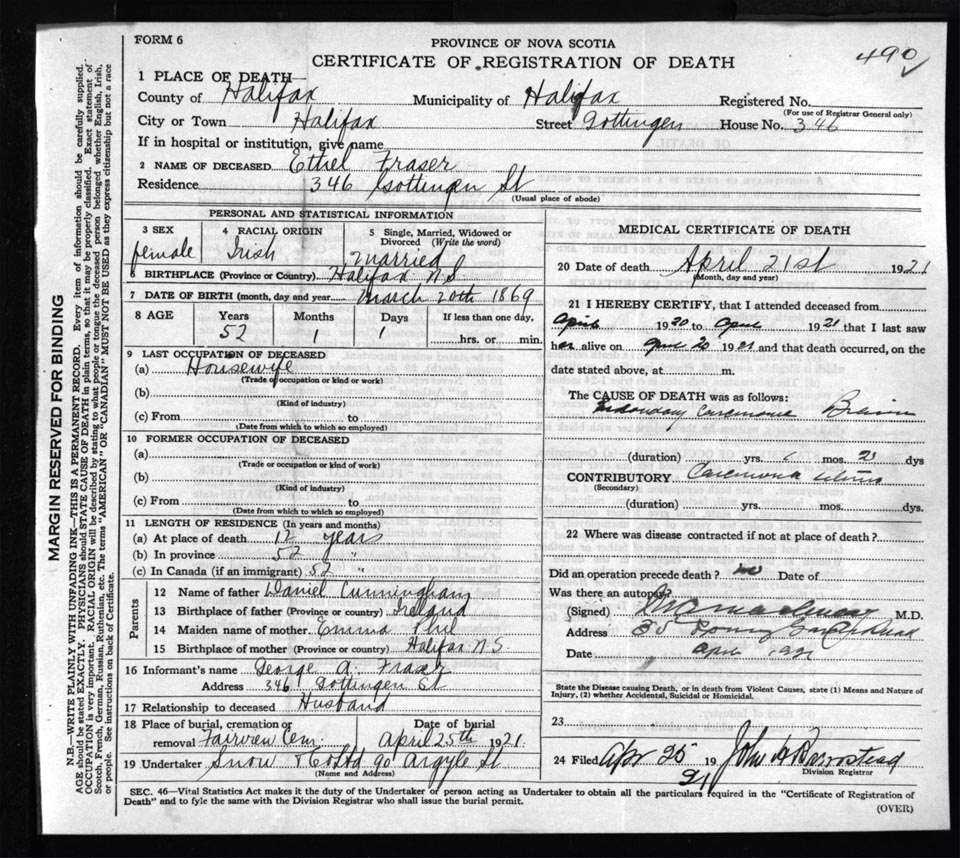 FORM 6
PROVINCE OF NOVA SCOTIA
CERTIFICATE OF REGISTRATION OF DEATH
490
1 PLACE OF DEATH
County of Halifax Municipality of Halifax Registered No.
(For use of Registrar General only)
City or Town Halifax Street Gottingen House No. 346
If in hospital or institution, give name
2 NAME OF DECEASED Ethel Fraser
Residence 346 Gottingen St
(Usual place of abode)
PERSONAL AND STATISTICAL INFORMATION
3 SEX female
4 RACIAL ORIGIN Irish
5 Single, Married, Widowed or Divorced (Write the word) Married
6 BIRTHPLACE (Province or Country) Halifax N.S.
7 DATE OF BIRTH (month, day and year) March 20th 1869
8 AGE Years Months Days If less than one day,
52 1 1 hrs. or min.
9 LAST OCCUPATION OF DECEASED
(a) Housewife
(Trade or occupation or kind of work)
(b)
(Kind of industry)
(c) From to
(Date from which to which so employed)
10 FORMER OCCUPATION OF DECEASED
(a)
(Trade or occupation or kind of work)
(b)
(Kind of industry)
(c) From to
(Date from which to which so employed)
11 LENGTH OF RESIDENCE (In years and months)
(a) At place of death 12 years
(b) In province 52 "
(c) In Canada (if an immigrant) 52 "
Parents
12 Name of father Daniel Cunningham
13 Birthplace of father (Province or country) Ireland
14 Maiden name of mother Emma
15 Birthplace of mother (Province or country) Halifax N.S.
16 Informant's name George A. Fraser
Address 346 Gottingen St
17 Relationship to deceased Husband
18 Place of burial, cremation or removal Fairview Cem. Date of burial April 25th 1921.
19 Undertaker Snow & Co Ltd 90 Argyle St
(Name and Address)
MEDICAL CERTIFICATE OF DEATH
20 Date of death April 21st 1921
(Month, day and year)
21 I HEREBY CERTIFY, that I attended deceased from
April 1920 to April 1921 that I last saw
her alive on April 20 1921 and that death occurred, on the
date stated above, at m.
The CAUSE OF DEATH was as follows:
Secondary Carcinoma Brain
(duration) yrs. mos. 21 dys
CONTRIBUTORY Carcinoma Uterus
(Secondary)
(duration) yrs. mos. dys.
22 Where was disease contracted if not at place of death?
Did an operation precede death? no Date of
Was there an autopsy?
(Signed) M.D.
Address
Date April
State the Disease causing Death, or in death from Violent Causes, state (1) Means and Nature of
Injury, (2) whether Accidental, Suicidal or Homicidal.
23
24 Filed Apr 25 1921 John H Barnstead
Division Registrar
SEC. 46—Vital Statistics Act makes it the duty of the Undertaker or person acting as Undertaker to obtain all the particulars required in the "Certificate of Registration of
Death" and to fyle the same with the Division Registrar who shall issue the burial permit.
(OVER)
MARGIN RESERVED FOR BINDING
N.B.—WRITE PLAINLY WITH UNFADING INK—THIS IS A PERMANENT RECORD. Every item of information should be carefully supplied.
AGE should be stated EXACTLY. PHYSICIANS should STATE CAUSE OF DEATH in plain terms, so that it may be properly classified. Exact statement of
OCCUPATION is very important. RACIAL ORIGIN will be described by stating to what people or tongue the deceased person belonged whether English, Irish,
Scotch, French, German, Russian, Ruthenian, etc. The terms "AMERICAN" OR "CANADIAN" MUST NOT BE USED as they express citizenship but not a race
or people. See instructions on back of Certificate.